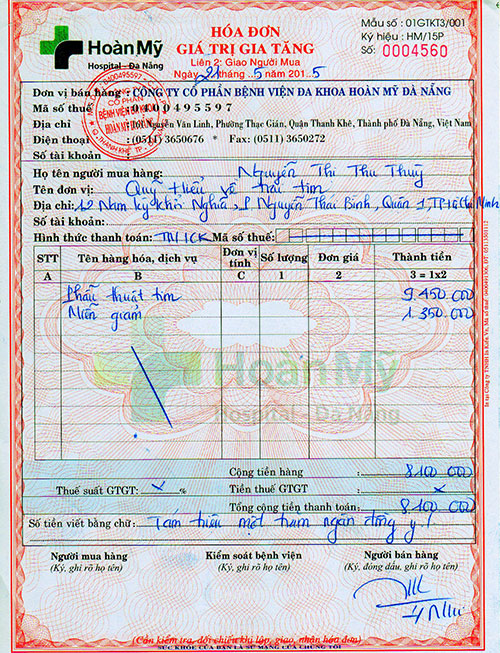 HoànMỹ
Hospital - Đà Nẵng
HÓA ĐƠN
GIÁ TRỊ GIA TĂNG
Liên 2: Giao Người Mua
Ngày 21 tháng 5 năm 2015
Mẫu số : 01GTKT3/001
Ký hiệu : HM/15P
Số: 0004560
Đơn vị bán hàng : CÔNG TY CỔ PHẦN BỆNH VIỆN ĐA KHOA HOÀN MỸ ĐÀ NẴNG
Mã số thuế : 0400495597
Địa chỉ : Nguyễn Văn Linh, Phường Thạc Gián, Quận Thanh Khê, Thành phố Đà Nẵng, Việt Nam
Điện thoại : (0511) 3650676 * Fax: (0511) 3650272
Số tài khoản :
Họ tên người mua hàng: Nguyễn Thị Thu Thuỷ
Tên đơn vị: Quỹ về trái tim
Địa chỉ: 12 Nam Kỳ Khởi Nghĩa, P Nguyễn Thái Bình, Quận 1, TP Hồ Chí Minh
Số tài khoản:
Hình thức thanh toán: TM/CK Mã số thuế:
STT Tên hàng hóa, dịch vụ Đơn vị tính Số lượng Đơn giá Thành tiền
A B C 1 2 3 = 1x2
Phẫu thuật tim 9.450.000
Miễn giảm 1.350.000
HoànMỹ
Hospital - Đà Nẵng
Cộng tiền hàng : 8100 000
Thuế suất GTGT: x % Tiền thuế GTGT : x
Tổng cộng tiền thanh toán: 8100 000
Số tiền viết bằng chữ: Tám triệu một trăm ngàn đồng y /
Người mua hàng Kiểm soát bệnh viện Người bán hàng
(Ký, ghi rõ họ tên) (Ký, ghi rõ họ tên) (Ký, đóng dấu, ghi rõ họ tên)
(Cần kiểm tra, đối chiếu khi lập, giao, nhận hóa đơn)
SỨC KHỎE CỦA BẠN LÀ SỨ MẠNG CỦA CHÚNG TÔI